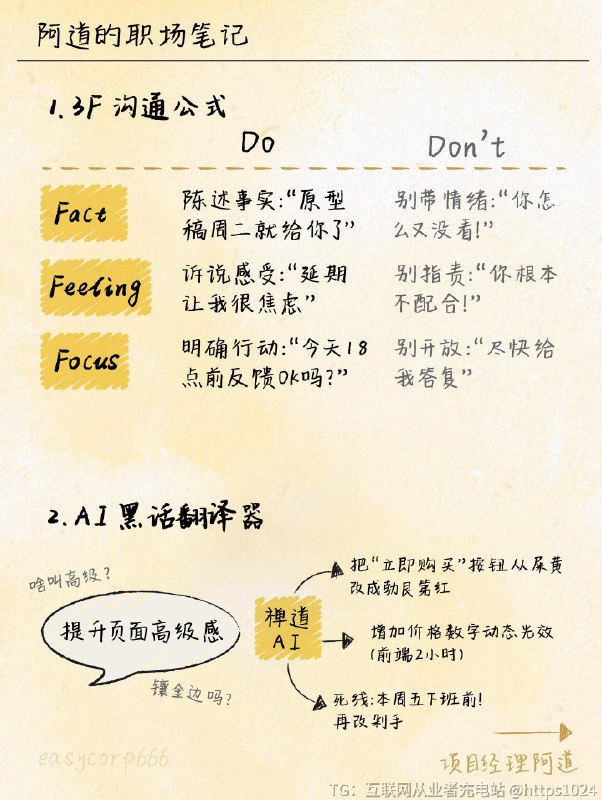 阿道的职场笔记
1.3F 沟通公式
Do
Don't
Fact
陈述事实:“原型
稿周二就给你了”
别带情绪:“你怎
么又没看!”
Feeling
诉说感受:“延期
让我很焦虑”
别指责:“你根本
不配合!”
Focus
明确行动:“今天18
点前反馈OK吗?”
别开放:“尽快给
我答复”
2.AI黑话翻译器
啥叫高级?
提升页面高级感
镶金边吗?
禅道
AI
把“立即购买”按钮从屎黄
改成勃艮第红
增加价格数字动态光效
(前端2小时)
死线:本周五下班前!
再改剁手
easycorp666
项目经理阿道
TG：互联网从业者充电站 @https1024